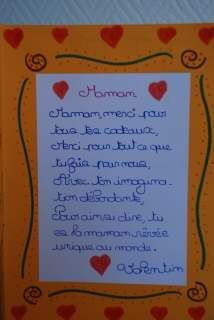 Maman
Maman, merci pour
tous tes cadeaux,
Merci pour tout ce que
tu fais pour nous,
Avec ton imagina-
tion débordante,
Pour ainsi dire, tu
es la maman rêvée
unique au monde.
Valentin